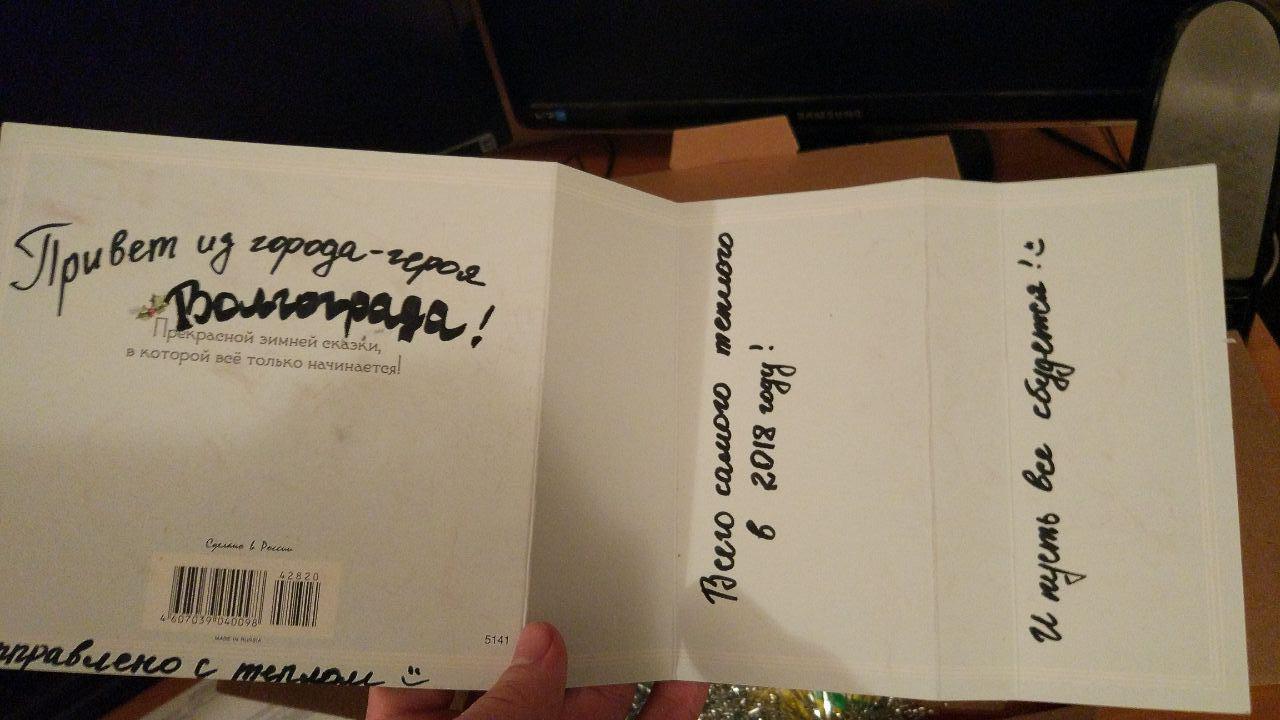 Привет из города-героя
Волгограда!
Прекрасной зимней сказки,
в которой всё только начинается!
Сделано в России
42820
4 607039 040098
MADE IN RUSSIA
5141
тправлено с теплом :)
Всего самого теплого
в 2018 году!
И пусть все сбудется! :)
SAMSUNG